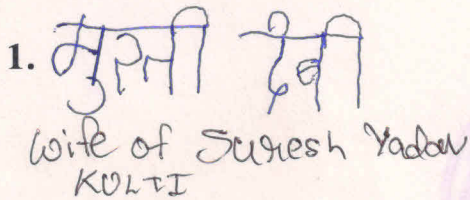 1. मुन्नी देवी
Wife of Suresh Yadav
KULTI